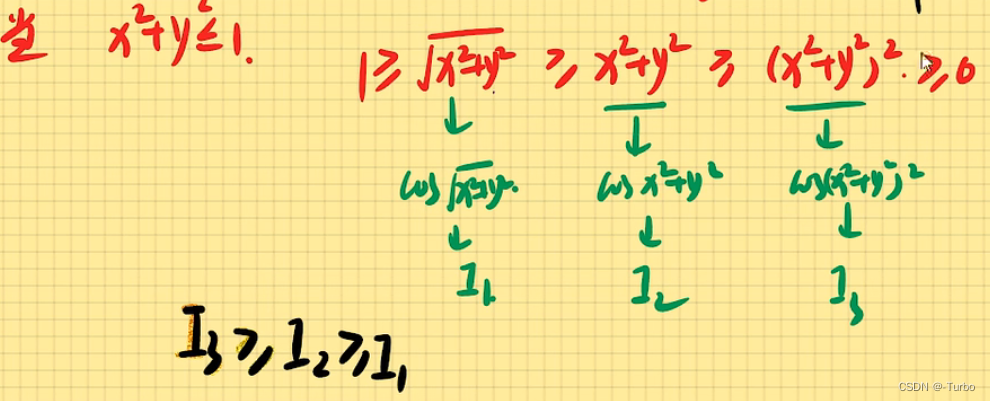 当 x²+y²≤1.
1 ≥ √(x²+y²) ≥ x²+y² ≥ (x²+y²)². ≥0
↓ ↓ ↓
cos√(x²+y²). cos x²+y² cos(x²+y²)²
↓ ↓ ↓
I₁ I₂ I₃
I₃ ≥ I₂ ≥ I₁
CSDN @-Turbo